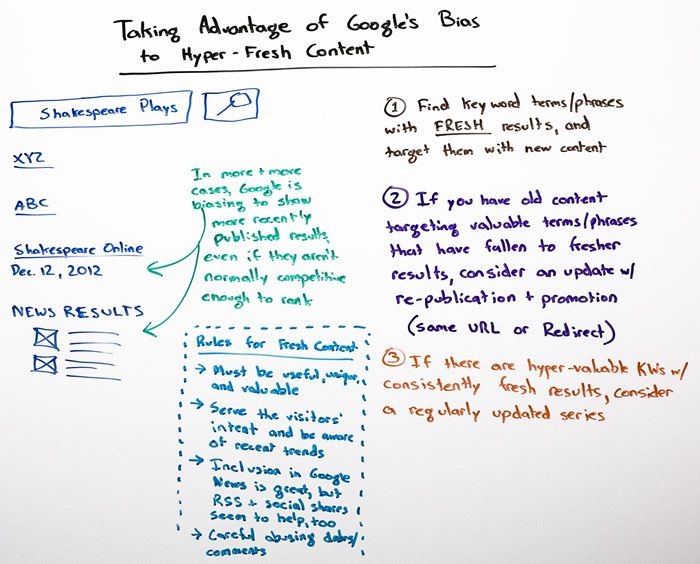 Taking Advantage of Google's Bias
to Hyper-Fresh Content
Shakespeare Plays
XYZ
ABC
Shakespeare Online
Dec. 12, 2012
NEWS RESULTS
In more + more
cases, Google is
biasing to show
more recently
published results,
even if they aren't
normally competitive
enough to rank
Rules for Fresh Content
→ Must be useful, unique,
and valuable
→ Serve the visitors'
intent and be aware
of recent trends
→ Inclusion in Google
News is great, but
RSS + social shares
seem to help, too
→ Careful abusing dates/
comments
① Find keyword terms/phrases
with FRESH results, and
target them with new content
② If you have old content
targeting valuable terms/phrases
that have fallen to fresher
results, consider an update w/
re-publication + promotion
(same URL or Redirect)
③ If there are hyper-valuable KWs w/
consistently fresh results, consider
a regularly updated series